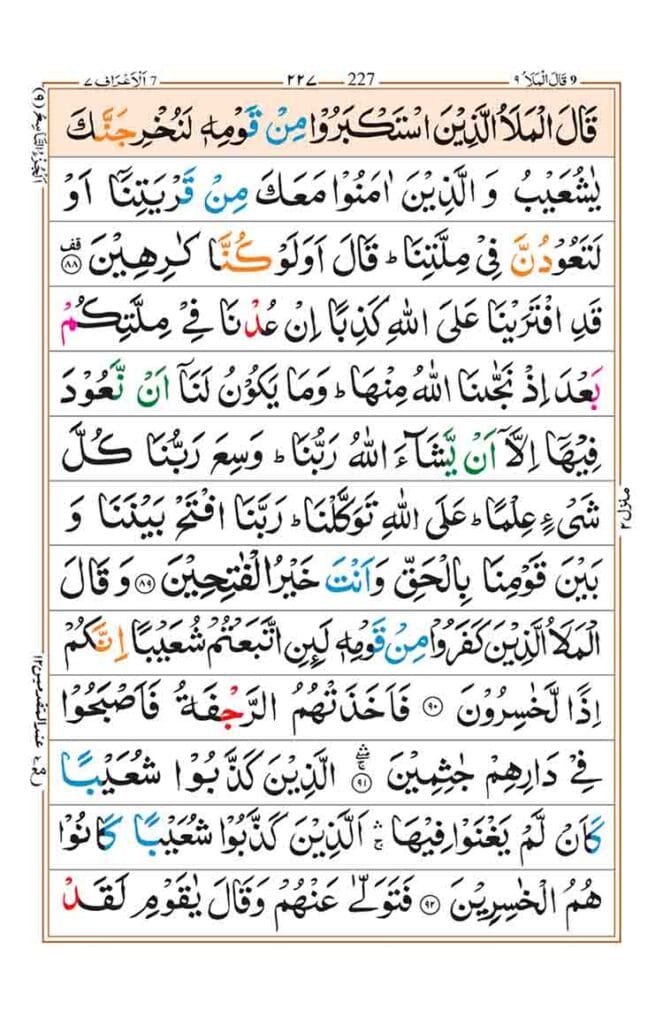 ٧ اَلْاَعْرَاف 7 ٢٢٧ 227 ٩ قَالَ الْمَلَاُ 9
قَالَ الْمَلَاُ الَّذِيْنَ اسْتَكْبَرُوْا مِنْ قَوْمِهٖ لَنُخْرِجَنَّكَ
يٰشُعَيْبُ وَ الَّذِيْنَ اٰمَنُوْا مَعَكَ مِنْ قَرْيَتِنَاۤ اَوْ
لَتَعُوْدُنَّ فِيْ مِلَّتِنَا ؕ قَالَ اَوَلَوْ كُنَّا كٰرِهِيْنَ ۟قف ٨٨
قَدِ افْتَرَيْنَا عَلَى اللّٰهِ كَذِبًا اِنْ عُدْنَا فِيْ مِلَّتِكُمْ
بَعْدَ اِذْ نَجّٰىنَا اللّٰهُ مِنْهَا ؕ وَمَا يَكُوْنُ لَنَاۤ اَنْ نَّعُوْدَ
فِيْهَاۤ اِلَّاۤ اَنْ يَّشَآءَ اللّٰهُ رَبُّنَا ؕ وَسِعَ رَبُّنَا كُلَّ
شَيْءٍ عِلْمًا ؕ عَلَى اللّٰهِ تَوَكَّلْنَا ؕ رَبَّنَا افْتَحْ بَيْنَنَا وَ
بَيْنَ قَوْمِنَا بِالْحَقِّ وَاَنْتَ خَيْرُ الْفٰتِحِيْنَ ٨٩ وَ قَالَ
الْمَلَاُ الَّذِيْنَ كَفَرُوْا مِنْ قَوْمِهٖ لَئِنِ اتَّبَعْتُمْ شُعَيْبًا اِنَّكُمْ
اِذًا لَّخٰسِرُوْنَ ٩٠ فَاَخَذَتْهُمُ الرَّجْفَةُ فَاَصْبَحُوْا
فِيْ دَارِهِمْ جٰثِمِيْنَ ٩١ الَّذِيْنَ كَذَّبُوْا شُعَيْبًا
كَاَنْ لَّمْ يَغْنَوْا فِيْهَا ۛۚ اَلَّذِيْنَ كَذَّبُوْا شُعَيْبًا كَانُوْا
هُمُ الْخٰسِرِيْنَ ٩٢ فَتَوَلّٰى عَنْهُمْ وَقَالَ يٰقَوْمِ لَقَدْ
اَلْجُزْءُ التَّاسِعُ (٩)
منزل ٢
عند المتقدمين ١٢